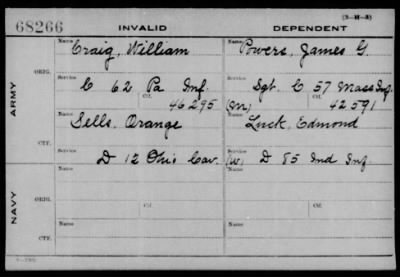 68266 INVALID DEPENDENT (3-M-3)
Name Craig, William Name Powers, James G.
ARMY
ORIG. Service C 62 Pa Inf. Ctf. 46295 Service Sgt. C 57 Mass Inf. Ctf. (M) 42591
Name Sells, Orange Name Luck, Edmond
CTF. Service D 12 Ohio Cav. Service (W) D 85 Ind Inf.
NAVY
Name Name
ORIG. Service Ctf. Service Ctf.
Name Name
CTF. Service Service